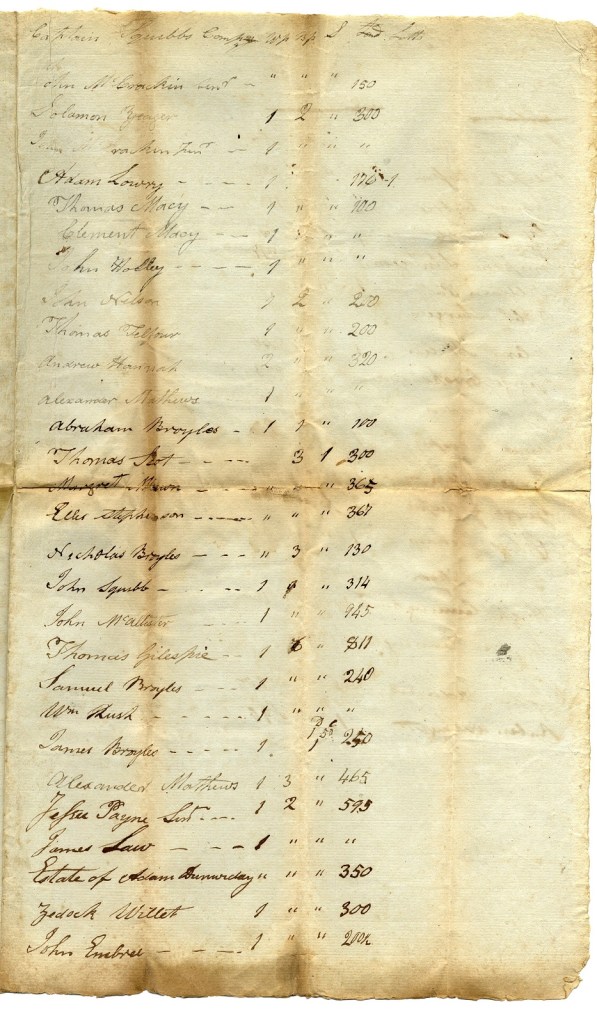 Captain Squibbs Compy Wp Bp S Land Lotts
John McCrackin Senr - " " " 150
Solomon Yeager 1 2 " 300
John McCrackin Junr - 1 " " "
Adam Lowry - - - - 1 " - 176 -1
Thomas Macy - - - 1 " " 100
Clement Macy - - 1 " "
John Holley - - - - 1 " " "
John Nelson 1 2 "
Thomas Telfour 1 " " 200
Andrew Hannah 2 " " 320
Alexander Mathews 1 " "
Abraham Broyles - 1 1 " 100
Thomas - - - - 3 1 300
Margrett - - - " " " 365
Ellis Stephenson - - - - " " " 367
Nicholas Broyles - - - " 3 " 130
John Squibb - - - - 1 " 314
John McAllister 1 " " 945
Thomas Gilespie - - 1 " 811
Samuel Broyles - - - 1 " " 240
Wm Rush - - - - - 1 " " "
James Broyles - - - 1 250
Alexander Mathews 1 3 " 465
Jessee Payne Senr - - - 1 2 " 595
James Law - - - - 1 " " "
Estate of Adam Dunwiday " " " 350
Zedock Willet 1 " " 300
John Embree - - - - 1 " "